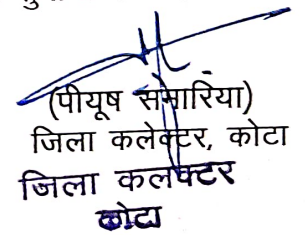 (पीयूष समारिया)
जिला कलेक्टर, कोटा
जिला कलेक्टर
कोटा